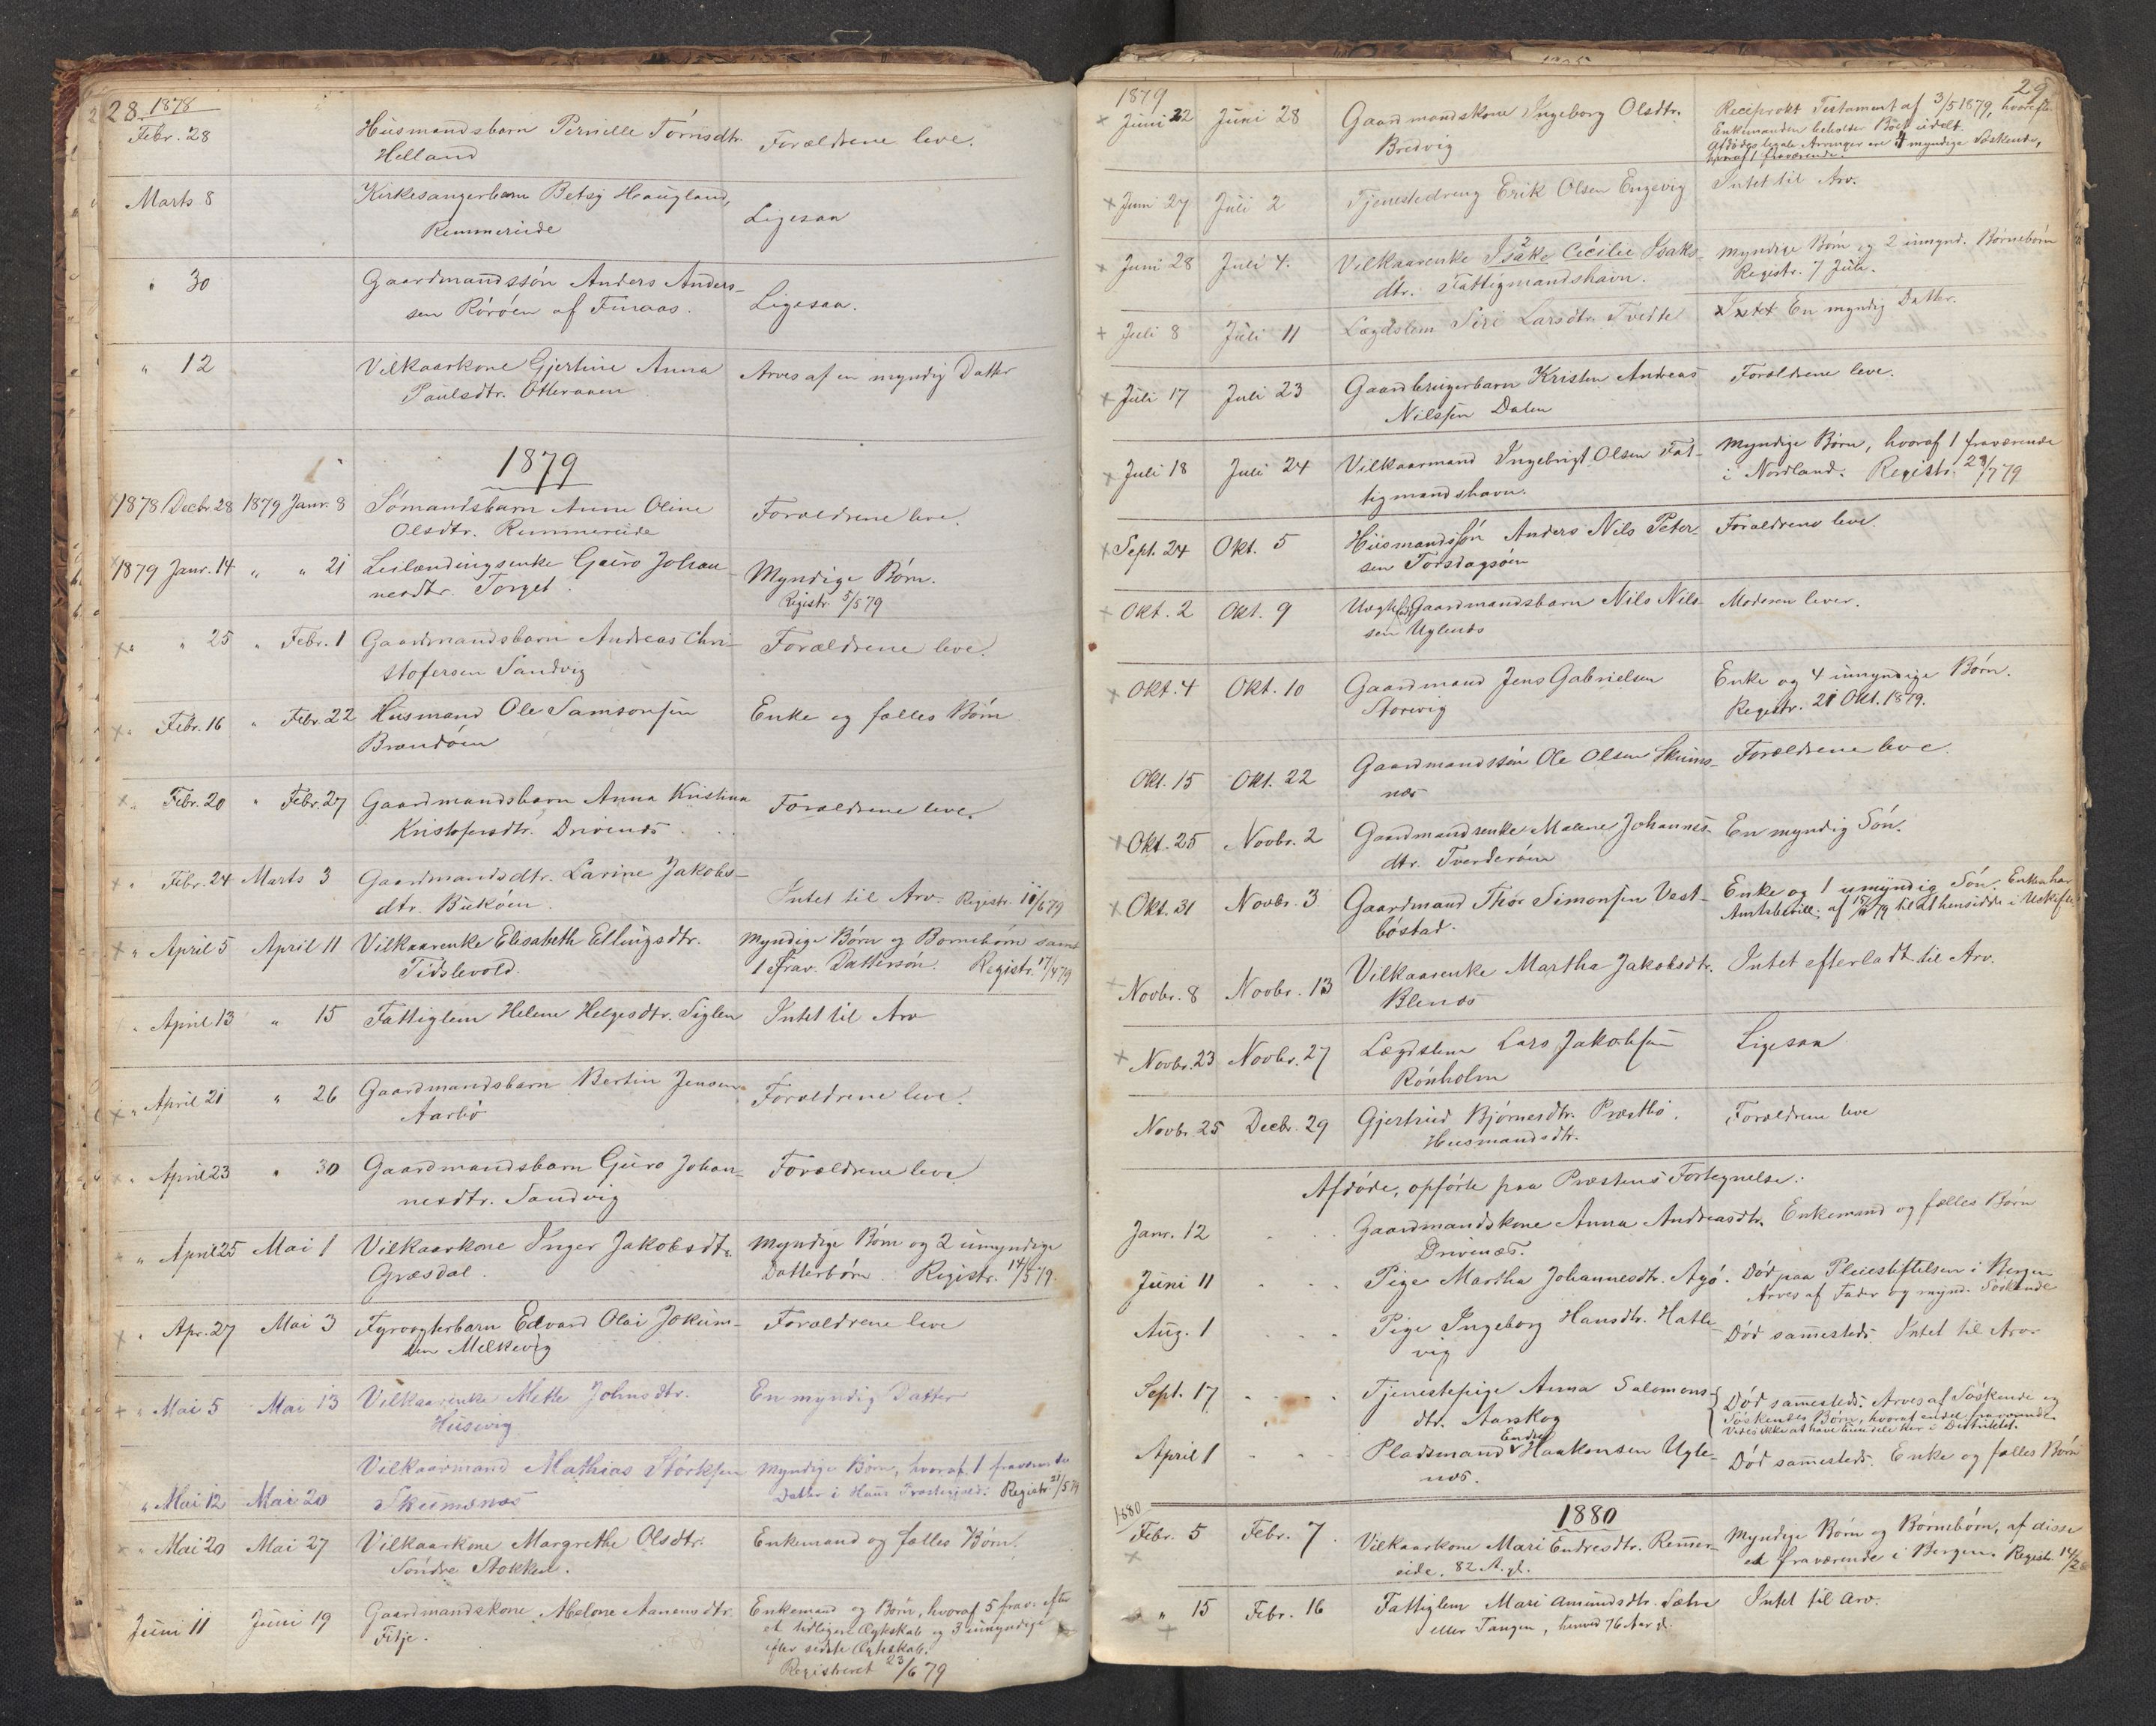 28. 1878
Febr. 28 Husmandsbarn Pernille Tørrisdtr. Forældrene leve.
Helland
Marts 8 Kirkesangerbarn Betsy Haugland, Ligesaa
Remmereide
" 30 Gaardmandssön Anders Anders- Ligesaa.
sen Röröen af Finaas.
" 12 Vilkaarkone Gjertine Anna Arves af en myndig Datter
Paulsdtr. Otteraaen
1879
1878 Decbr. 28 1879 Janr. 8 Sömandsbarn Anne Oline Forældrene leve.
Olsdtr. Remmereide
1879 Janr. 14 " " 21 Leilændingsenke Guro Johan- Myndige Börn.
nesdtr. Torget. Registr. 5/5 79
" " 25 " Febr. 1 Gaardmandsbarn Andreas Chri- Forældrene leve.
stofersen Sandvig
" Febr. 16 " Febr. 22 Husmand Ole Samsonsen Enke og fælles Börn
Brandöen
" Febr. 20 " Febr. 27 Gaardmandsbarn Anna Kristina Forældrene leve.
Kristofersdtr. Drivenæs
" Febr. 24 Marts 3 Gaardmandsdtr. Larine Jakobs- Intet til Arv. Registr. 11/6 79
dtr. Buköen.
" April 5 April 11 Vilkaarenke Elisabeth Ellingsdtr. Myndige Börn og Börnebörn samt
Tidslevold. 1 frav. Dattersön. Registr. 17/4 79
" April 13 " 15 Fattiglem Helene Helgesdtr. Siglen Intet til Arv
" April 21 " 26 Gaardmandsbarn Bertin Jensen Forældrene leve.
Aarbö
" April 23 " 30 Gaardmandsbarn Guro Johan- Forældrene leve
nesdtr. Sandvig
" April 25 Mai 1 Vilkaarkone Inger Jakobsdtr. Myndige Börn og 2 umyndige
Græsdal. Datterbörn. Registr. 14/5 79.
" Apr. 27 Mai 3 Fyrvogterbarn Edvard Olai Jokum- Forældrene leve
sen Melkevig
" Mai 5 Mai 13 Vilkaarenke Mette Johnsdtr. En myndig Datter
Husevig
Vilkaarmand Mathias Störksen Myndige Börn, hvoraf 1 fraværende
" Mai 12 Mai 20 Skumsnæs Datter i Haus Præstegjeld. Registr. 21/5 79
" Mai 20 Mai 27 Vilkaarkone Margrethe Olsdtr. Enkemand og fælles Börn.
Söndre Stokken.
Juni 11 Juni 19 Gaardmandskone Abelone Aanensdtr. Enkemand og Börn, hvoraf 5 frav. efter
Fitje. et tidligere Ægteskab og 3 umyndige
efter sidste Ægteskab.
Registreret 23/6 79
29.
1879
Juni 22 Juni 28 Gaardmandskone Ingeborg Olsdtr. Reciprokt Testament af 3/5 1879, hvorefter
Bredvig Enkemanden beholder Boet udelt.
Afdödes legale Arvinger ere 4 myndige Söskende,
hvoraf 1 fraværende.
Juni 27 Juli 2 Tjenestedreng Erik Olsen Engevig Intet til Arv.
Juni 28 Juli 4. Vilkaarenke Isake Cécilie Isaks- Myndige Börn og 2 umynd. Börnebörn
dtr. Fattigmandshavn. Registr. 7 Juli.
Juli 8 Juli 11 Lægdslem Siri Larsdtr. Tvedte Intet En myndig Datter.
Juli 17 Juli 23 Gaardbrugerbarn Kristen Andreas Forældrene leve.
Nilssen Dalen
Juli 18 Juli 24 Vilkaarmand Ingebrigt Olsen Fat- Myndige Börn, hvoraf 1 fraværende
tigmandshavn. i Nordland. Registr. 29/7 79
Sept. 24 Okt. 5 Husmandssön Anders Nils Peter- Forældrene leve.
sen Torsdagsöen
Okt. 2 Okt. 9 Uægtefödt Gaardmandsbarn Nils Nils- Moderen lever.
sen Uglenæs
Okt. 4 Okt. 10 Gaardmand Jens Gabrielsen Enke og 4 umyndige Börn.
Storevig Registr. 21 Okt. 1879.
Okt. 15 Okt. 22 Gaardmandssön Ole Olsen Skums- Forældrene leve.
næs
Okt. 25 Novbr. 2 Gaardmandsenke Malene Johannes- En myndig Sön.
dtr. Tverderöen
Okt. 31 Novbr. 3 Gaardmand Thor Simonsen Vest- Enke og 1 umyndig Sön. Enken har
böstad. Amtsbevill. af 15/11 79 til at hensidde i Uskifte
Novbr. 8 Novbr. 13 Vilkaarenke Martha Jakobsdtr. Intet efterladt til Arv.
Blenæs
Novbr. 23 Novbr. 27 Lægdslem Lars Jakobsen Ligesaa
Rönholm
Novbr. 25 Decbr. 29 Gjertrud Bjørnesdtr. Præstbö. Forældrene leve
Husmandsdtr.
Afdöde, opförte paa Præstens Fortegnelse:
Janr. 12 Gaardmandskone Anna Andreasdtr. Enkemand og fælles Börn
Drivenæs.
Juni 11 Pige Martha Johannesdtr. Agö. Död paa Pleiestiftelsen i Bergen
Arves af Fader og mynd. Söskende
Aug. 1 Pige Ingeborg Hansdtr. Hatle- Död samesteds. Intet til Arv
vig
Sept. 17 Tjenestepige Anna Salomons- Död samesteds. Arves af Söskende og
dtr. Aarskog Söskendes Börn, hvoraf endel fraværende.
Vides ikke at have eiendele her i Distriktet.
April 1 Pladsmand Endre Haakonsen Ugle- Död samesteds. Enke og fælles Börn
næs.
1880
1880
Febr. 5 Febr. 7. Vilkaarkone Mari Endresdtr. Remer- Myndige Börn og Börnebörn, af disse
eide. 82 A. gl. et fraværende i Bergen. Registr. 14/2
" 15 Febr. 16 Fattiglem Mari Amundsdtr. Sætre Intet til Arv.
eller Tangen, henved 76 Aar gl.